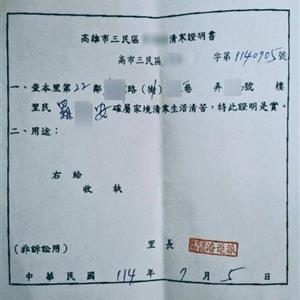 高雄市三民區 清寒證明書
高市三民區 字第1140905號
一、查本里第22鄰 路(街) 巷 弄 號 樓
里民羅 安確屬家境清寒生活清苦，特此證明是實。
二、用途：
右給
收執
(非訴訟用) 里長
中華民國114年9月5日